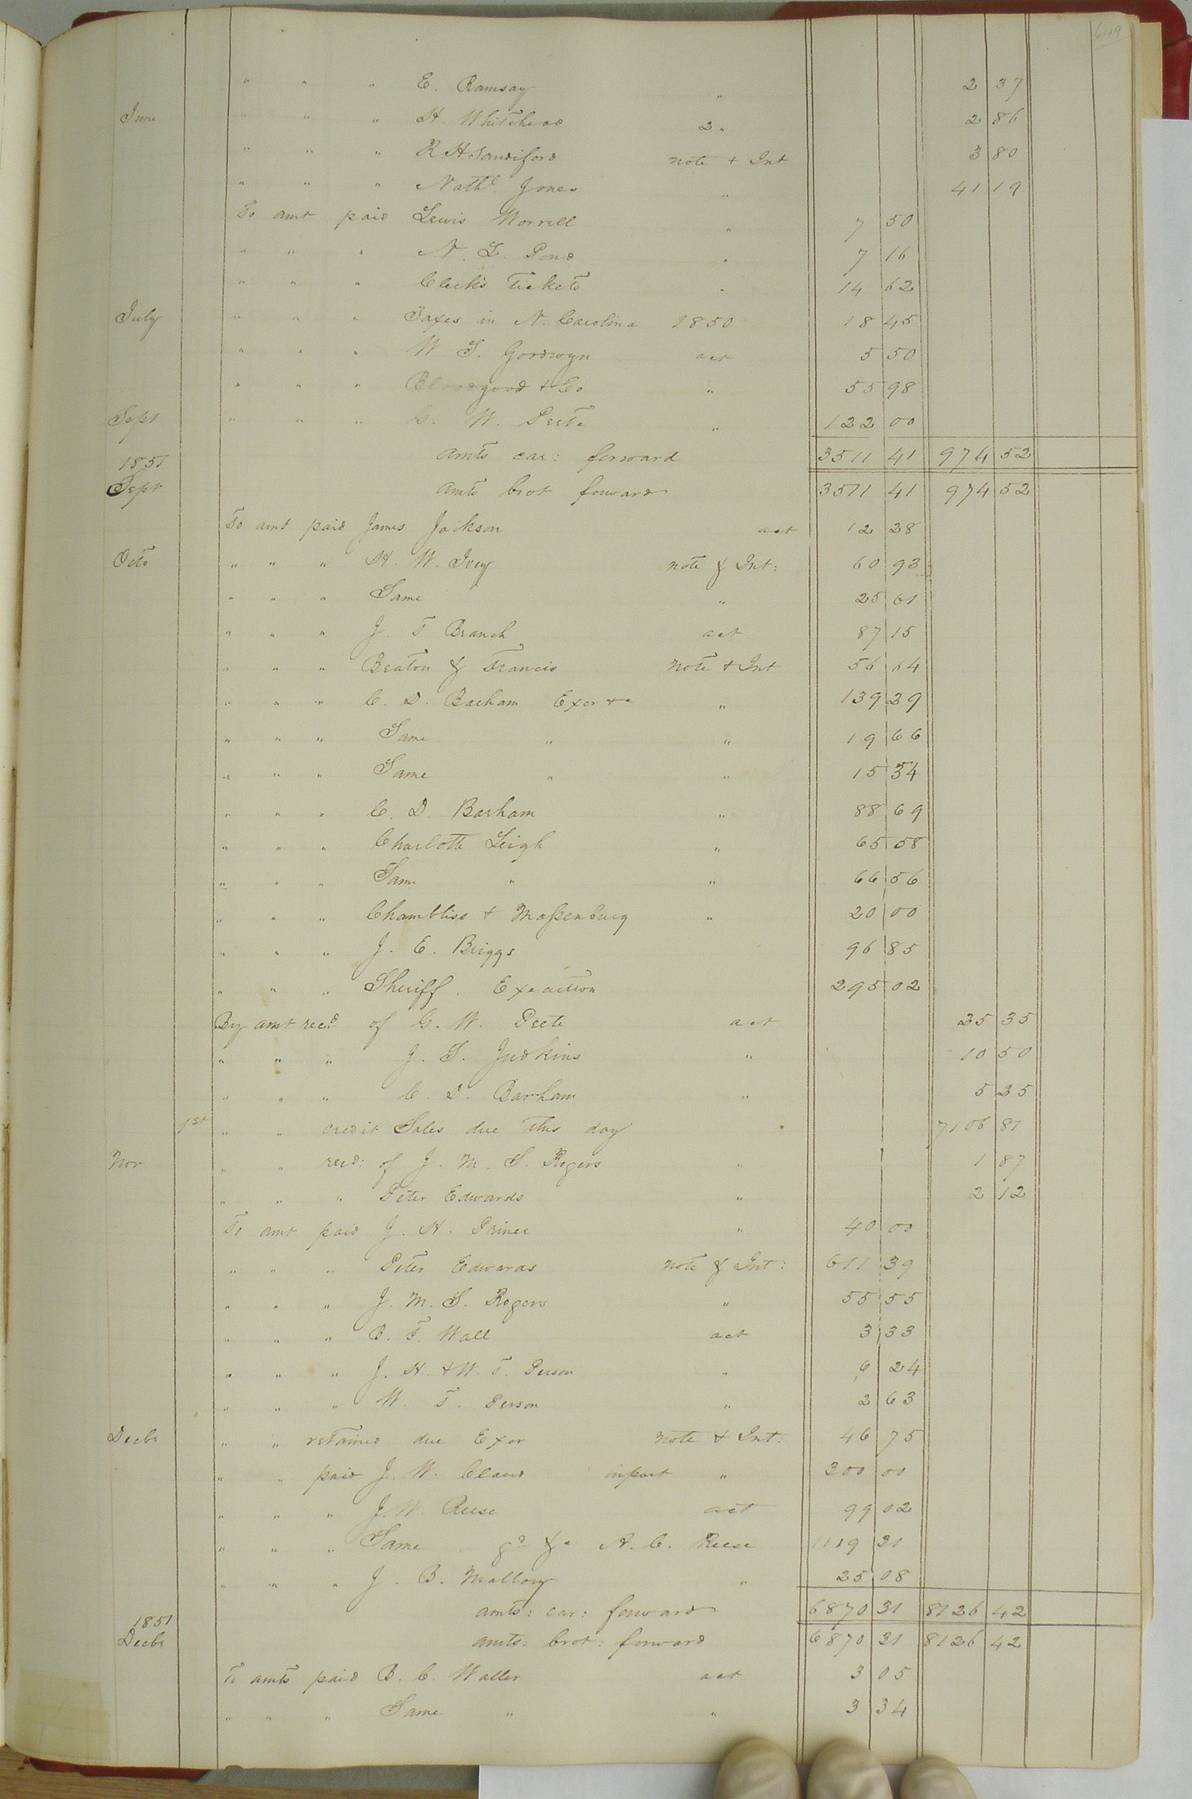 649
" " " E. Ramsay " 2 37
June " " " H. Whitehead 2. 2 86
" " " R H Sandiford note + Int 3 80
" " " Nathl. Jones " 41 19
To amt paid Lewis Worrell " 7 50
" " " N. L. Pond " 7 16
" " " Clerks tickets " 14 62
July " " " Taxes in N. Carolina 1850 18 45
" " " W S. Goodwyn act 5 50
" " " Bloodgood + Co " 55 98
Sept " " " G. W. Peete " 122 00
1851 amts car: forward 3511 41 974 52
Sept amts brot forward 3511 41 974 52
To amt paid James Jackson act 12 38
Octo " " " H. W. Ivey note & Int: 60 93
" " " Same " 25 61
" " " J. T Branch act 87 15
" " " Beaton & Francis note + Int 56 64
" " " C. D. Barham Exor + " 139 29
" " " Same " " 19 66
" " " Same " " 15 34
" " " C. D. Barham " 88 69
" " " Charlotte Leigh " 65 58
" " " Same " " 66 56
" " " Chambliss + Massenburg " 20 00
" " " J. E. Briggs 96 85
" " " Sheriff. Execution 295 02
By amt recd. of G. W. Peete act 35 35
" " " J. S. Judkins " 10 50
" " " C. D. Barham " 5 35
1st " " credit Sales due this day 7106 81
Nov " " recd: of J. M. S. Rogers " 1 87
" " " Peter Edwards " 2 12
To amt paid J. H. Prince " 40 00
" " " Peter Edwards note & Int: 611 39
" " " J. M. S. Rogers " 55 55
" " " B. F. Wall act 3 33
" " " J. H. + W. T. Person " 6 24
" " " W. T. Person " 2 63
Decbr " " retained due Exor note + Int: 46 75
" " paid J. W. Claud in part " 300 00
" " " J. W. Reese act 99 02
" " " Same A. C. Reese 1119 21
" " " J. B. Mallory " 25 08
amts: car: forward 6870 31 8126 42
1851
Decbr amts: brot: forward 6870 31 8126 42
To amts paid B. C. Waller act 3 05
" " " Same " " 3 34